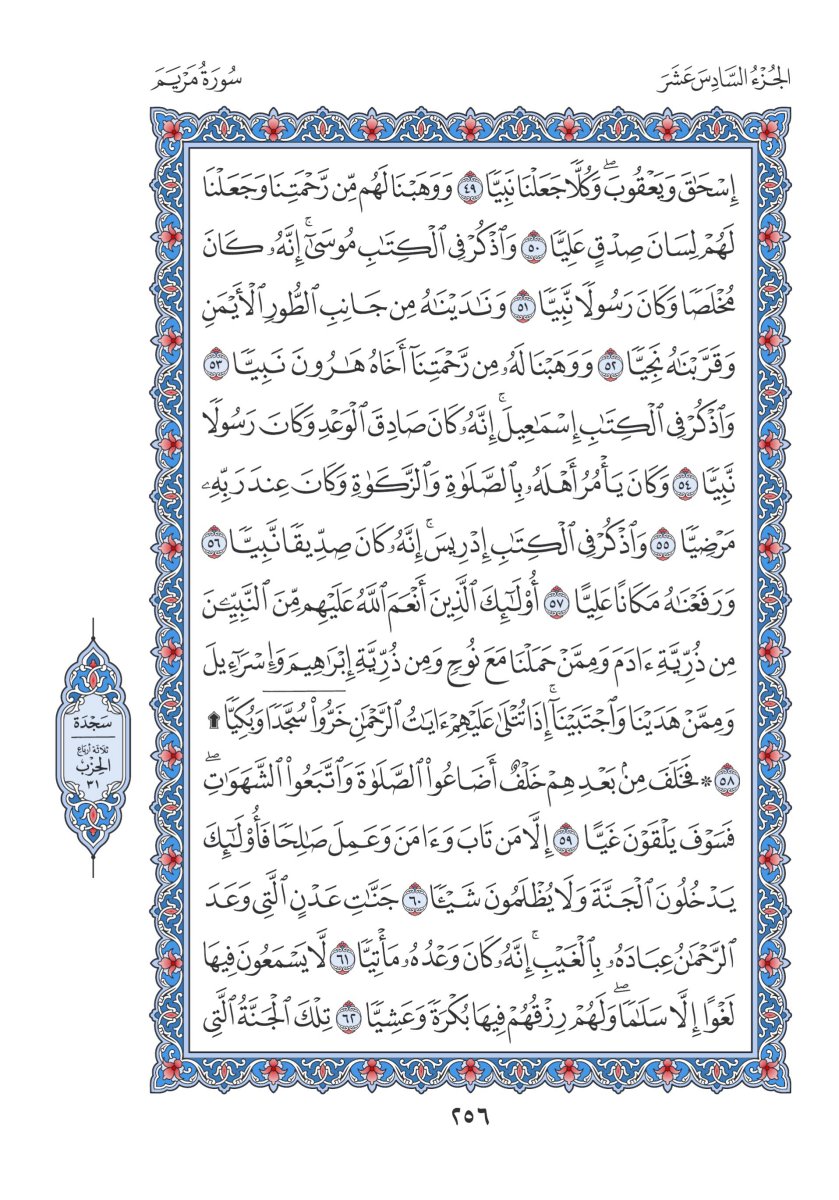 الجُزْءُ السَّادِسَ عَشَرَ
سُورَةُ مَرْيَمَ
إِسْحَٰقَ وَيَعْقُوبَۖ وَكُلًّا جَعَلْنَا نَبِيًّا ٤٩ وَوَهَبْنَا لَهُم مِّن رَّحْمَتِنَا وَجَعَلْنَا
لَهُمْ لِسَانَ صِدْقٍ عَلِيًّا ٥٠ وَٱذْكُرْ فِي ٱلْكِتَٰبِ مُوسَىٰٓۚ إِنَّهُۥ كَانَ
مُخْلَصًا وَكَانَ رَسُولًا نَّبِيًّا ٥١ وَنَٰدَيْنَٰهُ مِن جَانِبِ ٱلطُّورِ ٱلْأَيْمَنِ
وَقَرَّبْنَٰهُ نَجِيًّا ٥٢ وَوَهَبْنَا لَهُۥ مِن رَّحْمَتِنَآ أَخَاهُ هَٰرُونَ نَبِيًّا ٥٣
وَٱذْكُرْ فِي ٱلْكِتَٰبِ إِسْمَٰعِيلَۚ إِنَّهُۥ كَانَ صَادِقَ ٱلْوَعْدِ وَكَانَ رَسُولًا
نَّبِيًّا ٥٤ وَكَانَ يَأْمُرُ أَهْلَهُۥ بِٱلصَّلَوٰةِ وَٱلزَّكَوٰةِ وَكَانَ عِندَ رَبِّهِۦ
مَرْضِيًّا ٥٥ وَٱذْكُرْ فِي ٱلْكِتَٰبِ إِدْرِيسَۚ إِنَّهُۥ كَانَ صِدِّيقًا نَّبِيًّا ٥٦
وَرَفَعْنَٰهُ مَكَانًا عَلِيًّا ٥٧ أُو۟لَٰٓئِكَ ٱلَّذِينَ أَنْعَمَ ٱللَّهُ عَلَيْهِم مِّنَ ٱلنَّبِيِّـۧنَ
مِن ذُرِّيَّةِ ءَادَمَ وَمِمَّنْ حَمَلْنَا مَعَ نُوحٍ وَمِن ذُرِّيَّةِ إِبْرَٰهِيمَ وَإِسْرَٰٓءِيلَ
وَمِمَّنْ هَدَيْنَا وَٱجْتَبَيْنَآۚ إِذَا تُتْلَىٰ عَلَيْهِمْ ءَايَٰتُ ٱلرَّحْمَٰنِ خَرُّوا۟ سُجَّدًا وَبُكِيًّا ۩
٥٨ ۞ فَخَلَفَ مِنۢ بَعْدِهِمْ خَلْفٌ أَضَاعُوا۟ ٱلصَّلَوٰةَ وَٱتَّبَعُوا۟ ٱلشَّهَوَٰتِۖ
فَسَوْفَ يَلْقَوْنَ غَيًّا ٥٩ إِلَّا مَن تَابَ وَءَامَنَ وَعَمِلَ صَٰلِحًا فَأُو۟لَٰٓئِكَ
يَدْخُلُونَ ٱلْجَنَّةَ وَلَا يُظْلَمُونَ شَيْـًٔا ٦٠ جَنَّٰتِ عَدْنٍ ٱلَّتِي وَعَدَ
ٱلرَّحْمَٰنُ عِبَادَهُۥ بِٱلْغَيْبِۚ إِنَّهُۥ كَانَ وَعْدُهُۥ مَأْتِيًّا ٦١ لَّا يَسْمَعُونَ فِيهَا
لَغْوًا إِلَّا سَلَٰمًاۖ وَلَهُمْ رِزْقُهُمْ فِيهَا بُكْرَةً وَعَشِيًّا ٦٢ تِلْكَ ٱلْجَنَّةُ ٱلَّتِي
سَجْدَة
ثلاثة أرباع
الحِزْب
٣١
٢٥٦